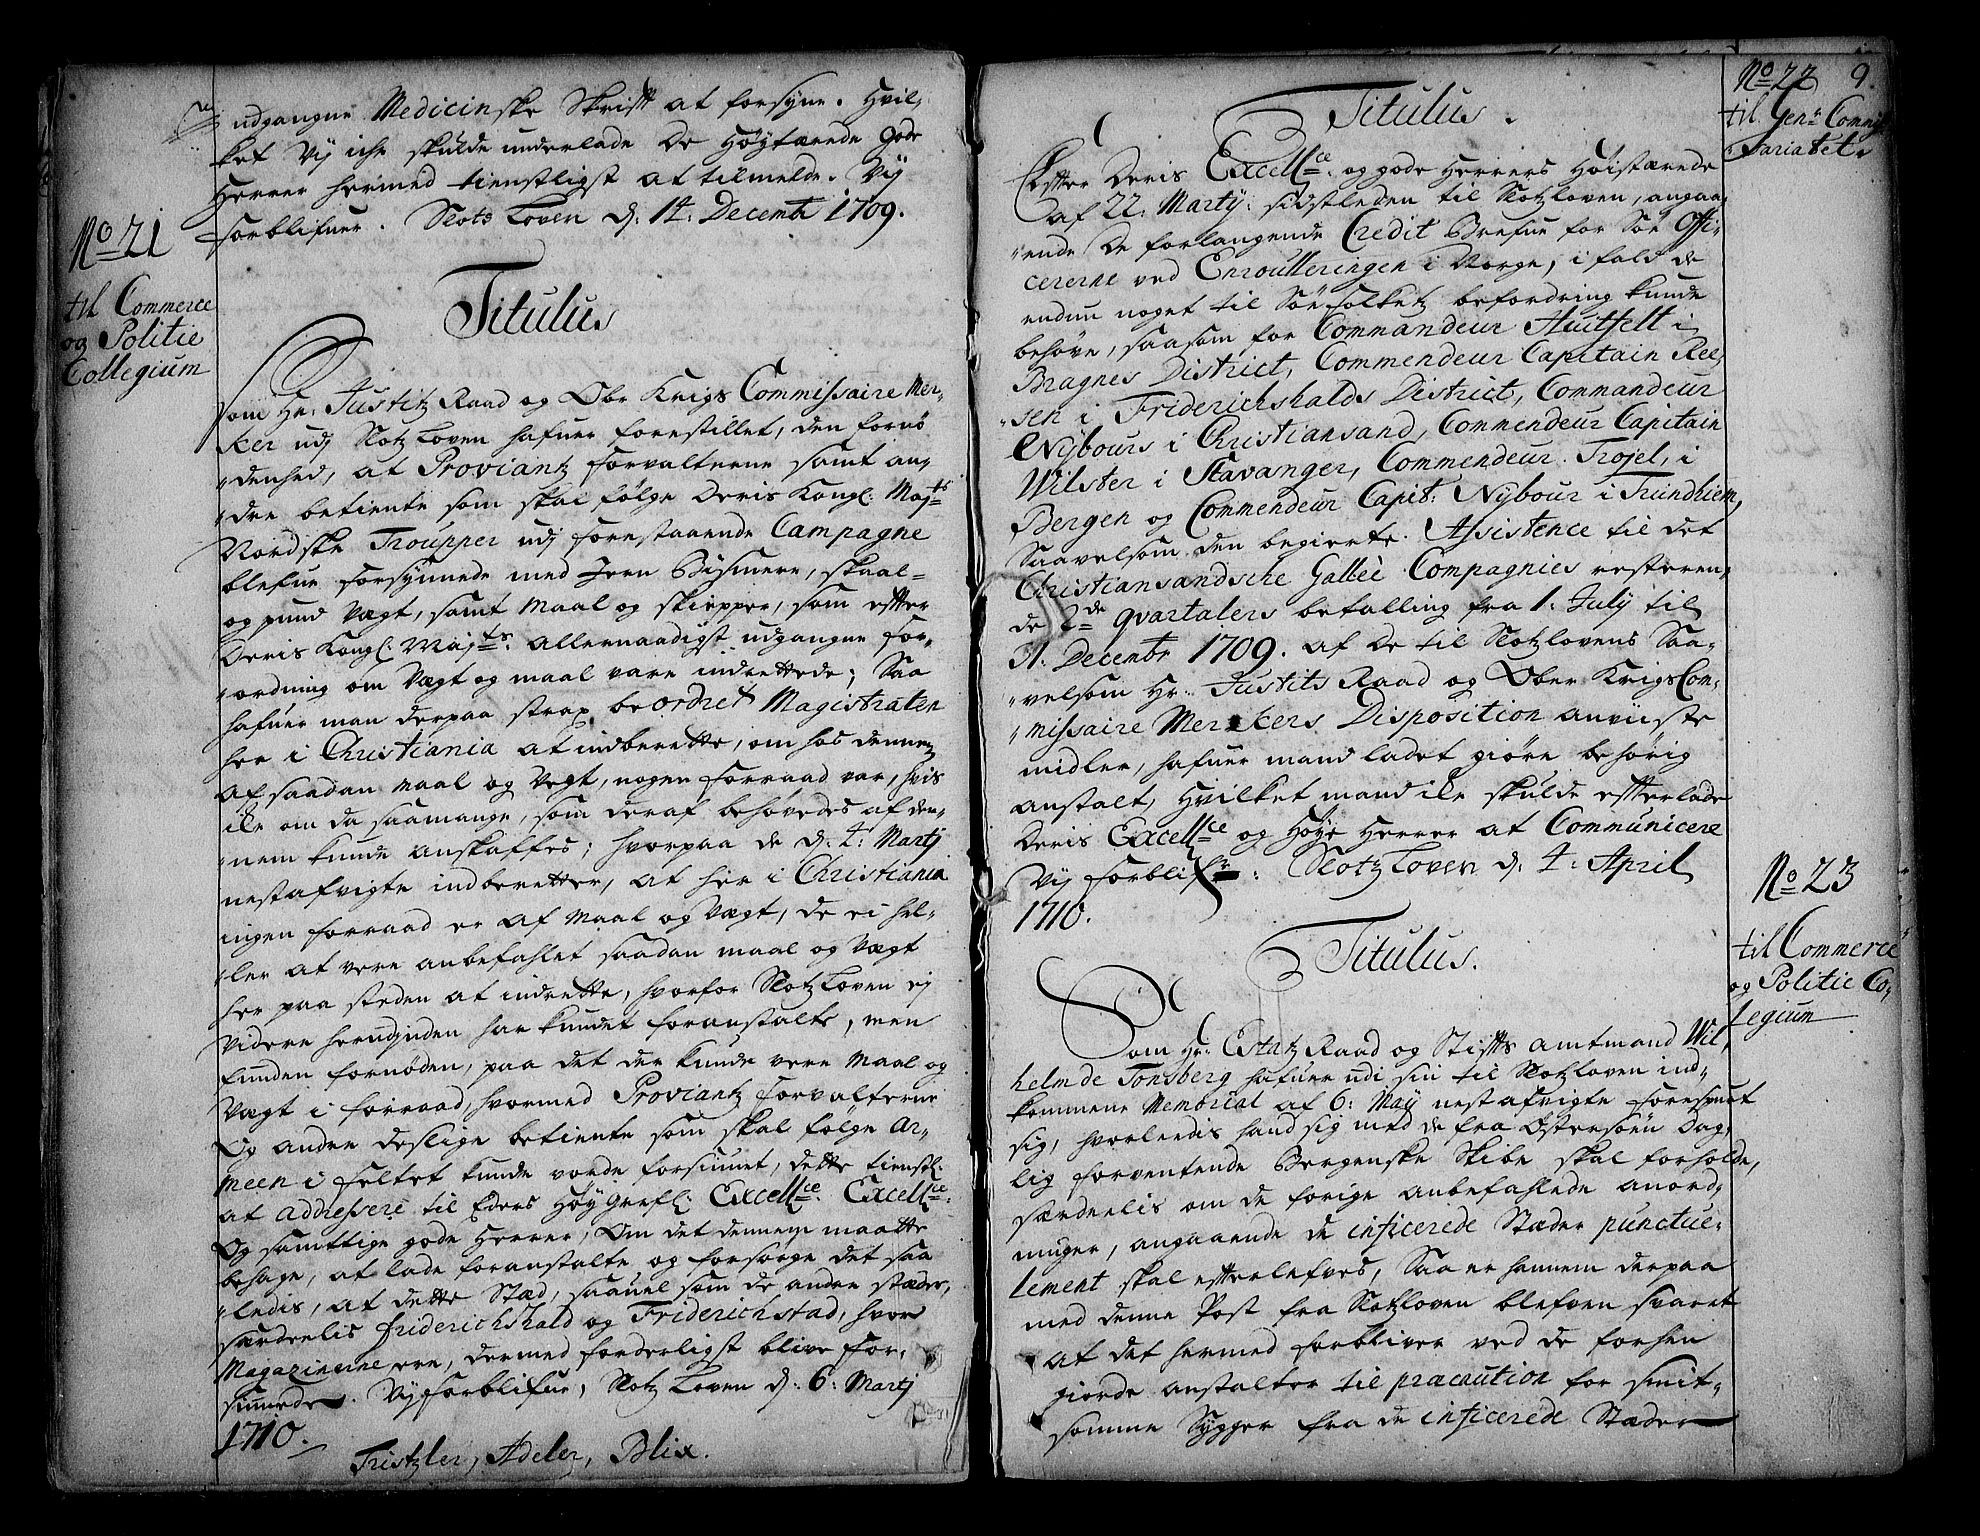 udgangne Medicinske Skrift at forsyne. Hvil-
ket Vij iche skulde underlade De Høytærede gode
Herrer hermed tienstligst at tilmelde. Vij
forblifuer. Slots Loven d: 14: Decembr 1709.
No 21
til Commerce
og Politie
Collegium
Titulus
Som Hr: Justitz Raad og Obr Krigs Commissaire Mer-
ker udj Slotz Loven hafuer forestillet, den fornø-
denhed, at Proviantz forvalterne samt an-
dre betiente som skal følge Deris Kongl: Majts
Nordske Troupper udj forestaaende Campagne
blefue forsynnede med Jern Bismere, skaal-
og pund Vægt, samt Maal og skiepper, som efter
Deris Kongl: Majts: allernaadigst udgangne for-
ordning om Vægt og maal vare indrettede; Saa
hafuer man derpaa strax beordret Magistraten
her i Christiania at indberette, om hos dennem
af saadan maal og Vegt, nogen forraad var, hvis
iche om da saamange, som deraf behøvedes af den-
nem kunde anskaffes; hvorpaa de d: 4: Martj
nestafvigte indberetter, at her i Christiania
ingen forraad er af Maal og Vægt, de ei hel-
ler at vere anbefahlet saadan maal og Vægt
her paa steden at indrette, hvorfor Slotz Loven ej
Videre herudjnden har kundet foranstalte, men
funden fornøden, paa det der kunde vere Maal og
Vægt i forraad, hvormed Proviantz forvalterne
Og andre deslige betiente som skal følge Ar-
meen i feltet kunde vorde forsiunet, dette tienstl:
at addressere til Eders Høy Grefl: Excellce: Excellce:
Og samttlige gode Herrer, Om det dennem maatte
behage, at lade foranstalte og forsorge det saa-
ledis, at dette Stæd, saauel som de andre stæder,
særdeelis friderichshald og Friderichstad, hvor
Magazinerne ere, dermed forderligst blive for-
siunede. Vij forblifue, Slotz Loven d: 6: Martj
1710.
Tristzler, Adeler, Blix.
No 22 9.
til Genl Commis-
sariatet.
Titulus.
Effter Deris Excellce: og gode Herrers Høistærede
af 22: Martij: sidstleden til Slotzloven, angaa-
ende De forlangende Credit Brefue for Søe Offi-
cererne ved Enroulleringen i Norge, i fald de
endnu noget til Søefolketz befordring kunde
behøve, saasom for Commandeur Huitfelt i
Bragnes District, Commendeur Capitain Ree-
sen i Friderichshalds District, Commandeur
Nybours i Christiansand, Commendeur Capitain
Wilster i Stavanger, Commendeur Trojel, i
Bergen og Commendeur Capit: Nÿbour i Trundhiem,
Saavelsom den begierte Assistence til det
Christiansandsche Gallei Compagnies resteren-
de 2de qvartalers betalling fra 1: July til
31: Decembr 1709. af De til Slotzlovens Saa-
velsom Hr: Justits Raad og Ober Krigs Com-
missaire Merckers Disposition anviiste
midler, hafuer mand ladet giøre behørig
anstalt, Hvilket mand iche skulde efterlade
Deris Excellce og Høye Herrer at Communicere
Vij forblifr: Slotz Loven d: 4: April
1710.
No 23
til Commerce
og Politie Co-
legium
Titulus.
Som Hr: Estatz Raad og Stifts amtmand Wil-
helm de Tonsberg hafuer udi sin til Slotzloven ind-
kommene Memorial af 6: Maij nestafvigte forespurt
sig, hvorledis hand sig med de fra Østersøen dag-
lig forventende Bergenske Skibe skal forholde,
særdeelis om de forige anbefahlede anord-
ninger, angaaende de inficerede Stæder punctue-
lement skal efterlefves, Saa er hannem derpaa
med denne Post fra Slotzloven blefven svaret
at det hermed forbliver ved de forhen
giorde anstalter til præcaution for smit-
somme Sygger fra de inficerede Stæder